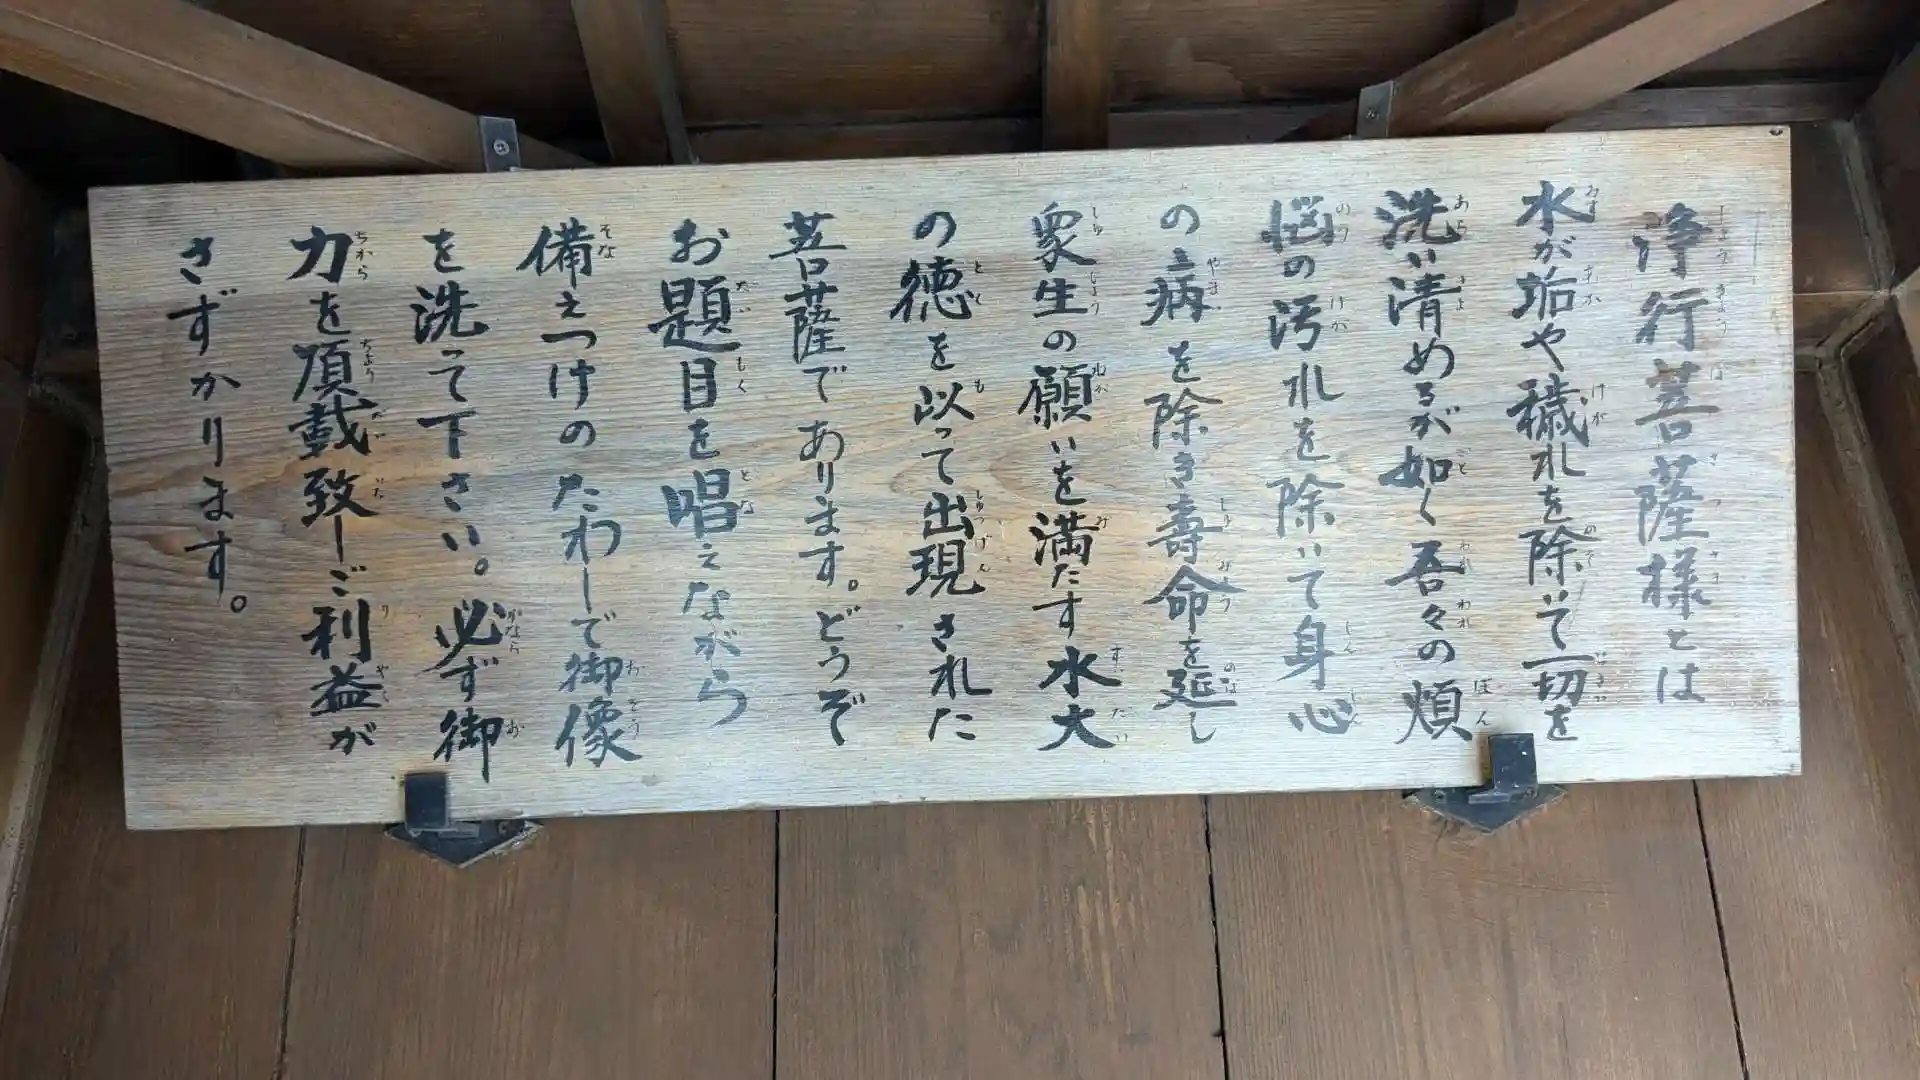 浄行菩薩様とは
水が垢や穢れを除いて一切を
洗い清めるが如く吾々の煩
悩の汚れを除いて身心
の病を除き壽命を延し
衆生の願いを満たす水大
の徳を以って出現された
菩薩であります。どうぞ
お題目を唱えながら
備えつけのたわしで御像
を洗って下さい。必ず御
力を頂載致しご利益が
さずかります。